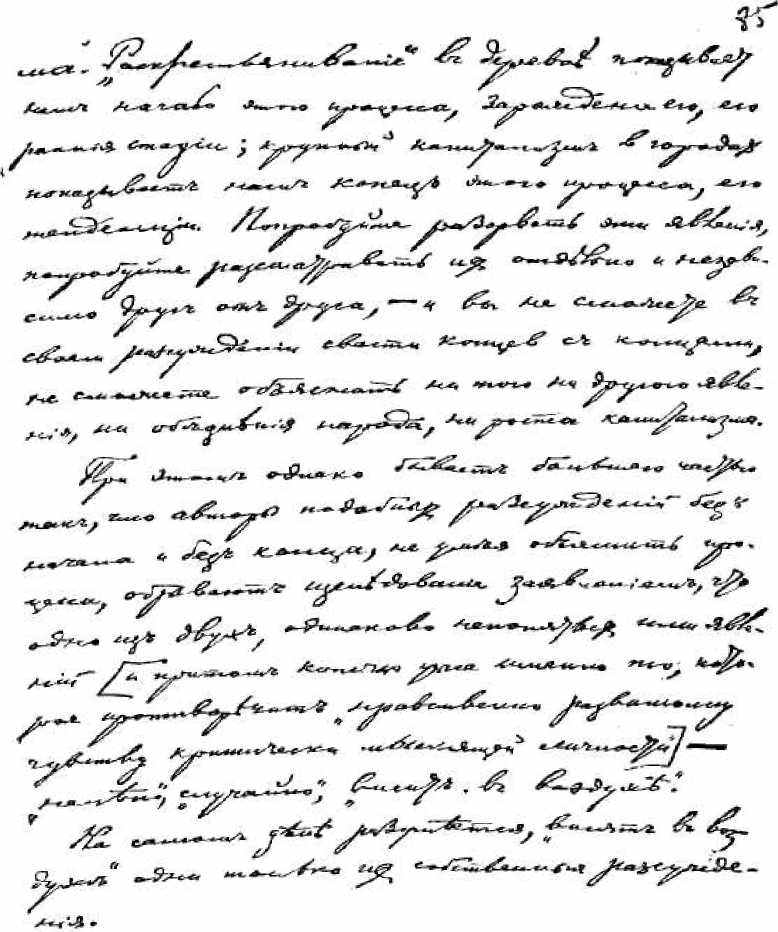 85
ма. „Раскрестьяниваніе“ въ деревнѣ показываетъ
намъ начало этого процесса, зарожденіе его, его
раннія стадіи; крупный капитализмъ въ городахъ
показываетъ намъ конецъ этого процесса, его
тенденціи. Попробуйте разорвать эти явленія,
попробуйте разсматривать ихъ отдѣльно и незави-
симо другъ отъ друга, — и вы не сможете въ
своемъ разсужденіи свести концевъ съ концами,
не сможете объяснить ни того ни другого явле-
нія, ни обѣднѣнія народа, ни роста капитализма.
При этомъ однако бываетъ большею частью
такъ, что авторы подобныхъ разсужденій безъ
начала и безъ конца, не умѣя объяснить про-
цесса, обрываютъ изслѣдованіе заявленіемъ, что
одно изъ двухъ, одинаково непонятыхъ ими явле-
ній [и притомъ конечно ужъ именно то, кото-
рое противорѣчитъ „нравственно развитому
чувству критически мыслящей личности“] —
„нелѣпо“, „случайно“, „виситъ въ воздухѣ“.
На самомъ дѣлѣ разумѣется, „висятъ въ воз-
духѣ“ одни только ихъ собственныя разсужде-
нія.